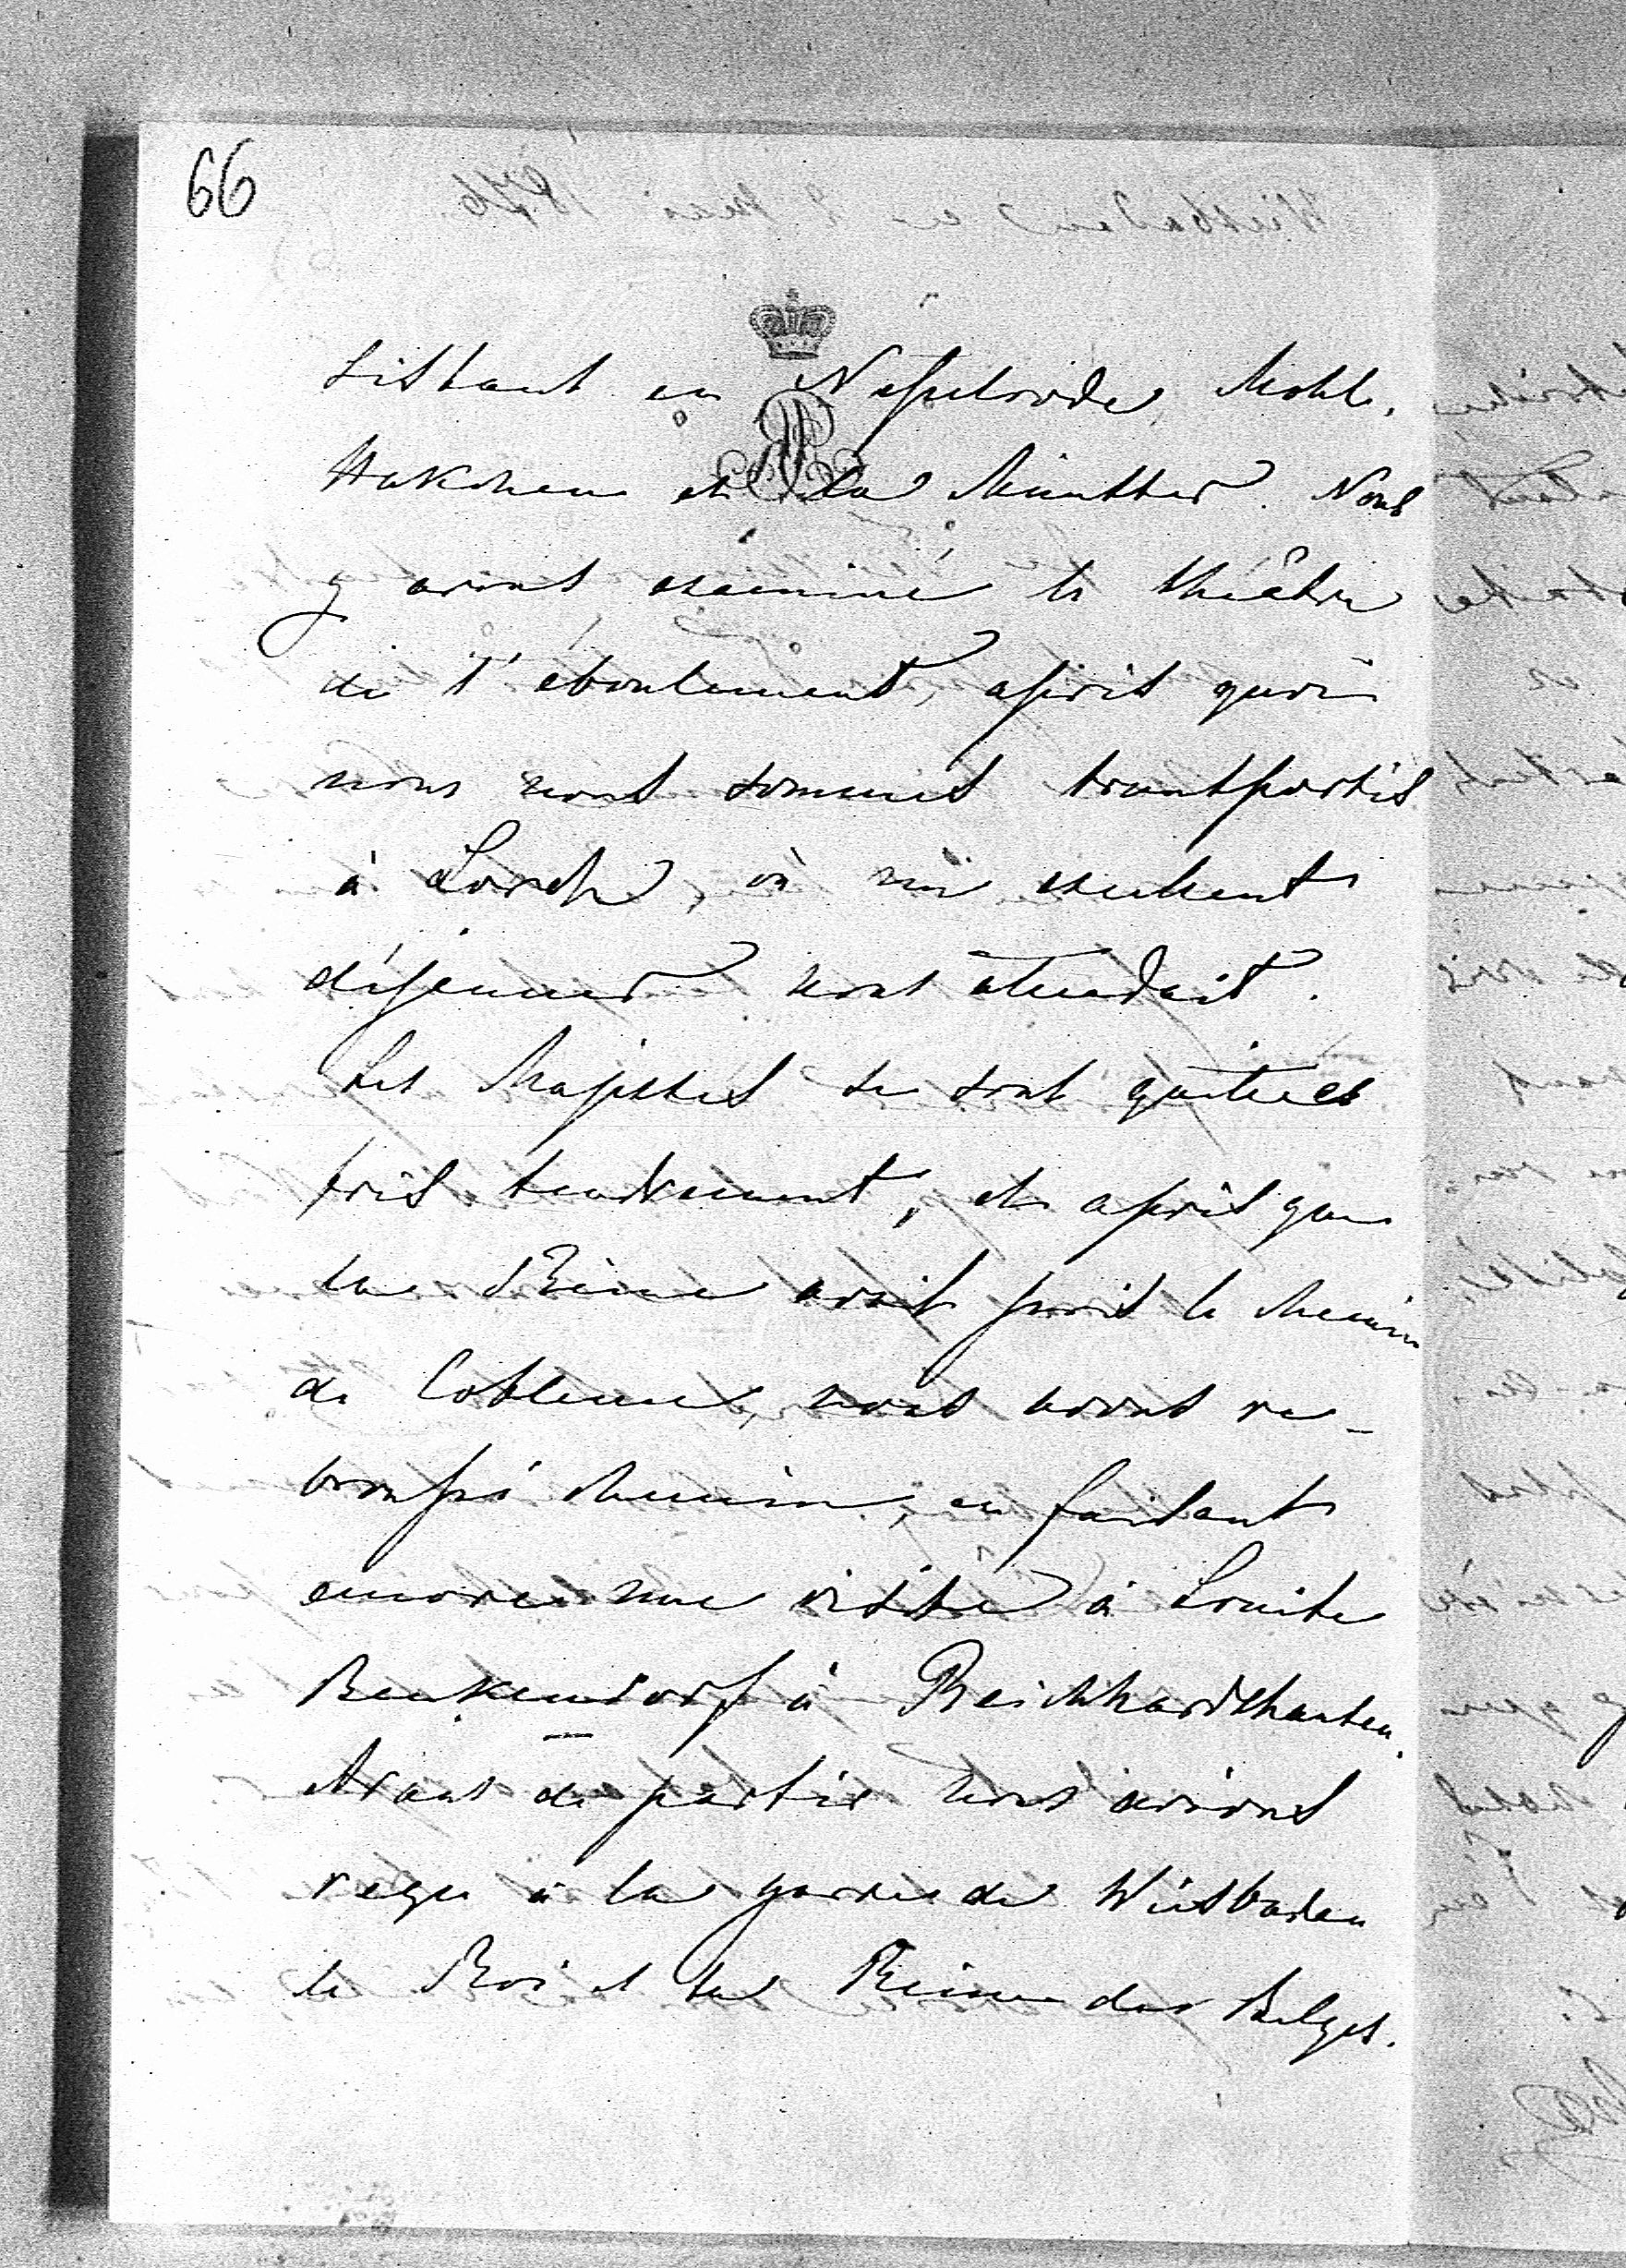 66
sistant en Nesselrode, Mohl.
et la Nous
y avons examiné le théâtre
de l'éboulement, après quoi
nous nous sommes transportés
à Lorch, où un excellent
déjeuner nous attendait.
Les Majestés se sont quittées
très tendrement, et après que
la Reine avait pris le chemin
de Coblence, nous avons re-
broussé chemin, en faisant
encore une visite à Louise
Benkendorf à Reichhardshausen.
Avant de partir nous avions
reçu à la garre de Wisbaden
le Roi et la Reine des Belges.